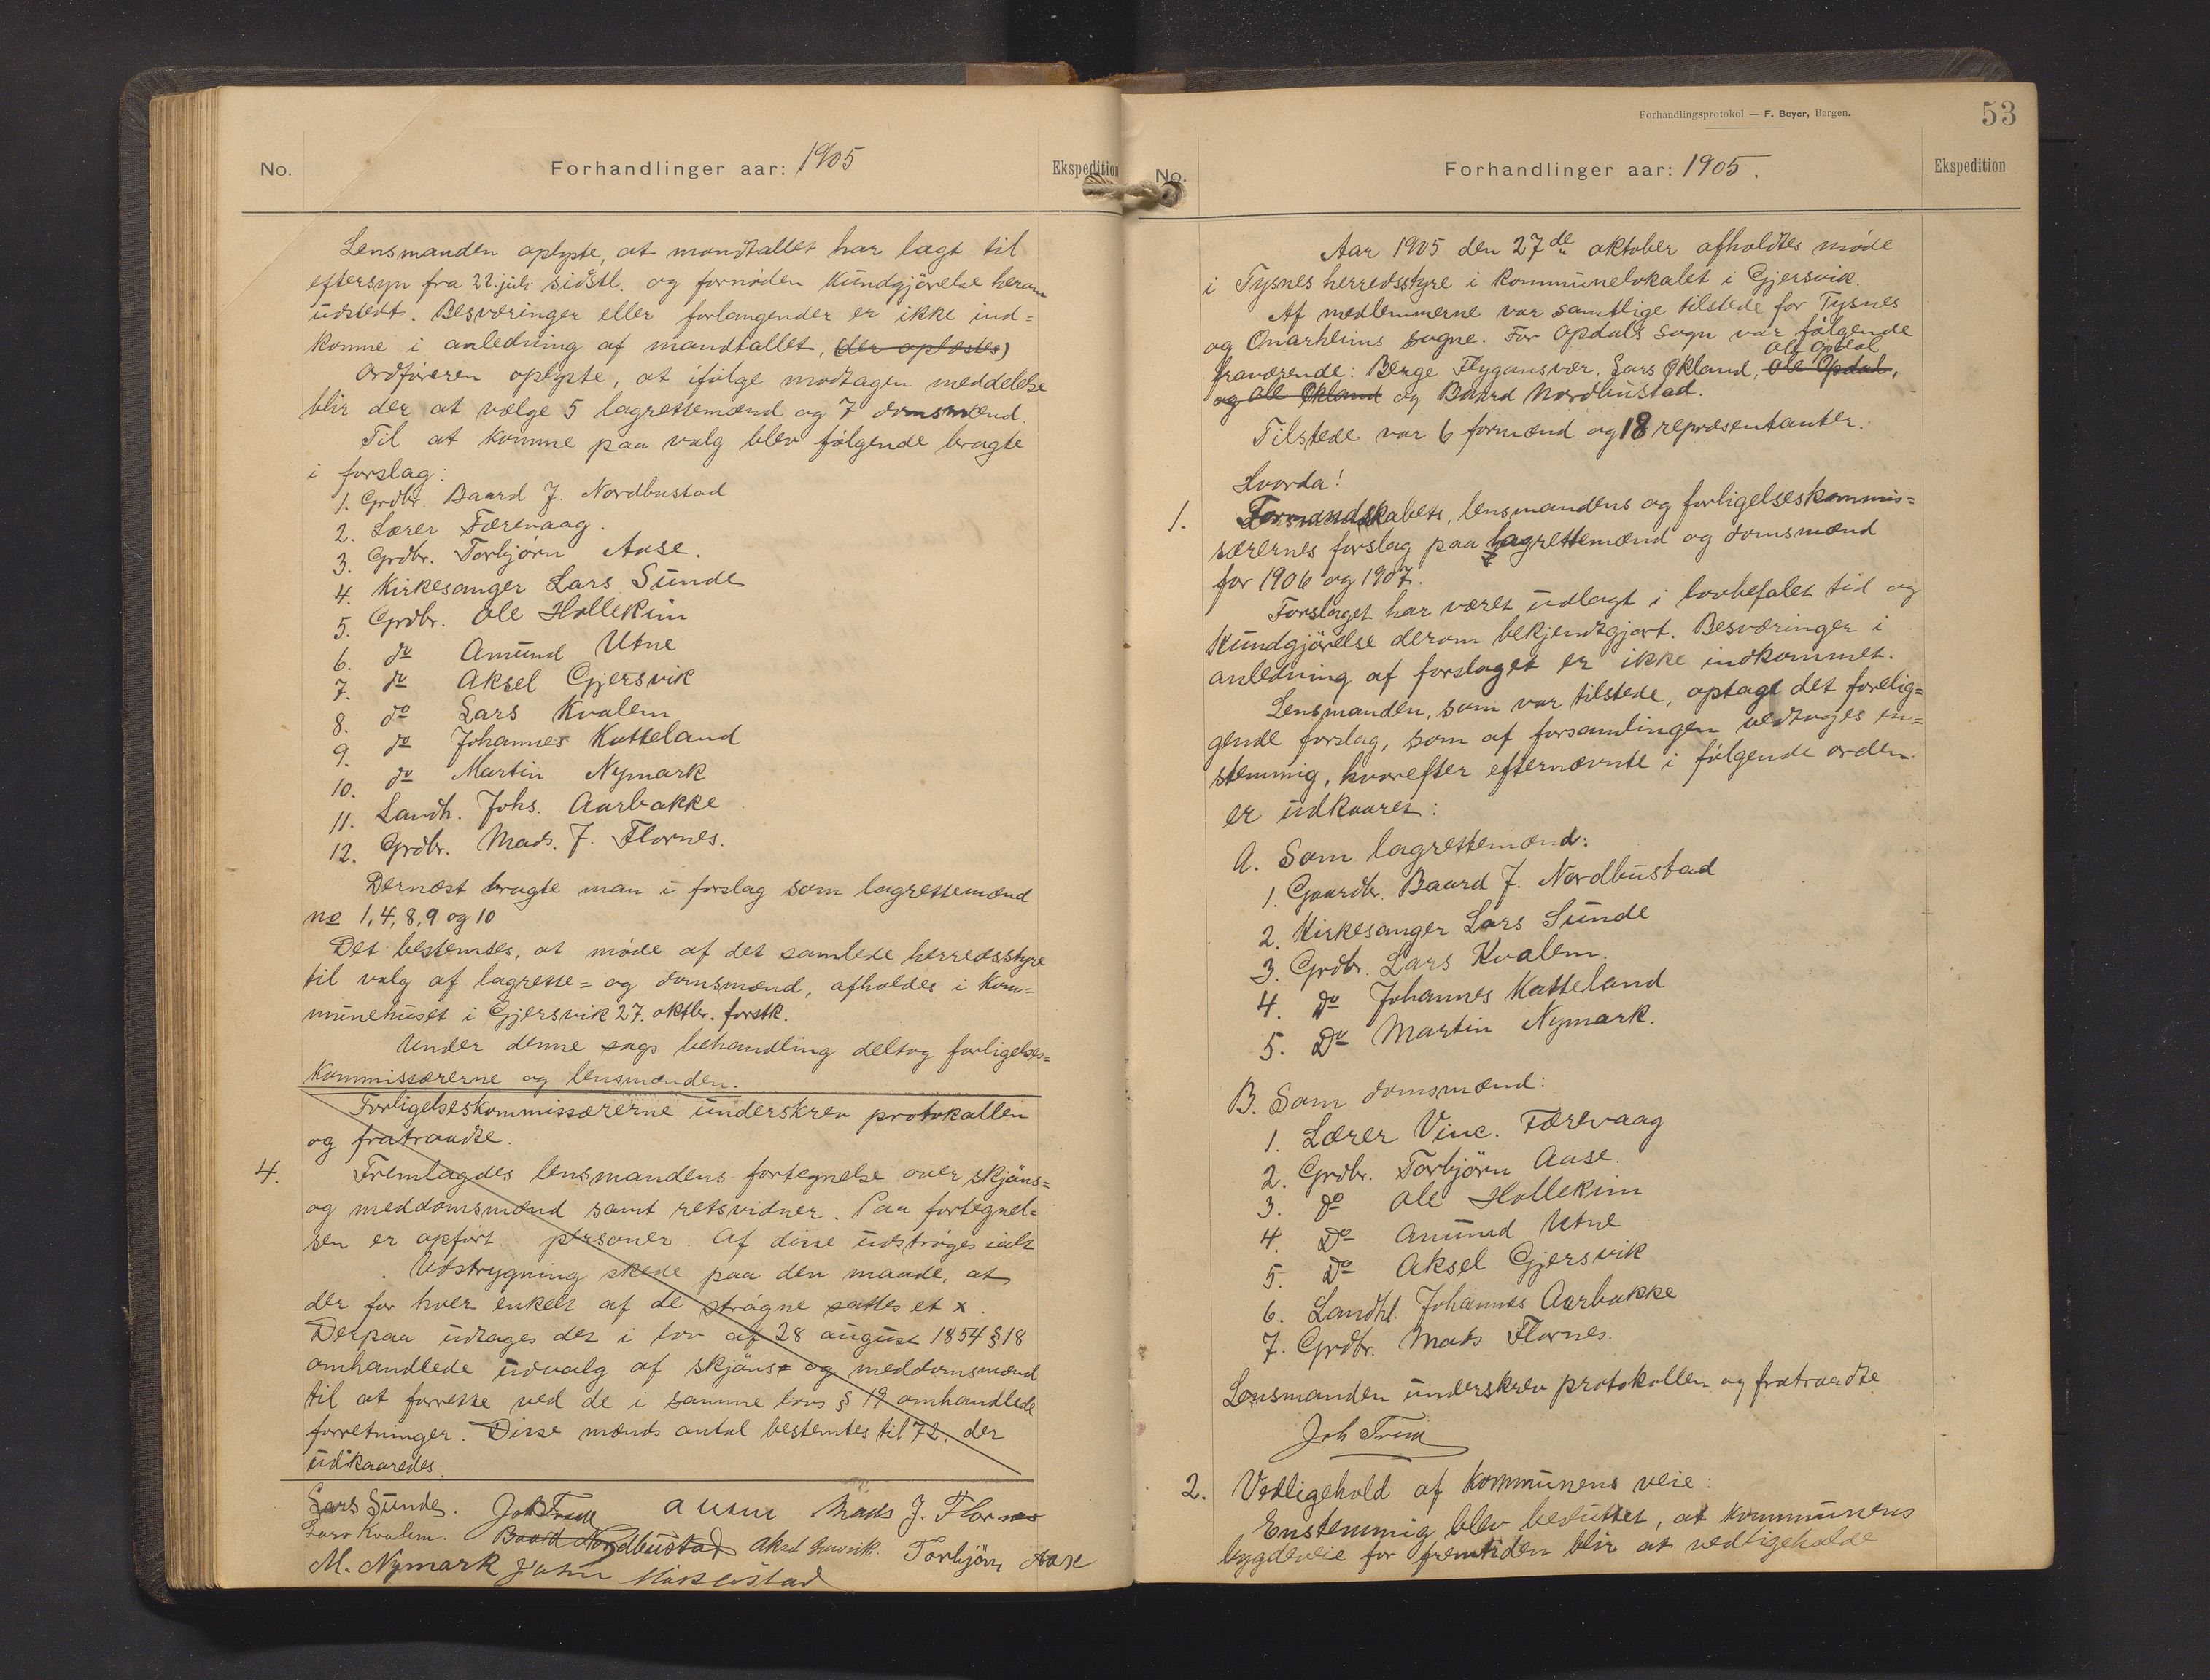 No.
Forhandlinger aar: 1905
Ekspedition
Lensmanden oplyste, at mandtallet har lagt til
eftersyn fra 22. juli sidstl. og fornøden kundgjörelse herom
udstedt. Besværinger eller forlangender er ikke ind=
komne i anledning af mandtallet, (der oplæstes)
Ordföreren oplyste, at ifölge modtagen meddelelse
blir der at vælge 5 lagrettemænd og 7 domsmænd.
Til at komme paa valg blev fölgende bragte
i forslag:
1. Grdbr. Baard J. Nordbustad
2. Lærer Færevaag.
3. Grdbr. Torbjörn Aase.
4. Kirkesanger Lars Sunde
5. Grdbr. Ole Hollekim
6. do Amund Utne
7. do Aksel Gjersvik
8. do Lars Kvalem
9. do Johannes Katteland
10. do Martin Nymark
11. Landh. Johs. Aarbakke
12. Grdbr. Mads. J. Flornes.
Dernæst bragte man i forslag som lagrettemænd
no 1, 4, 8, 9 og 10
Det bestemtes, at møde af det samlede herredsstyre
til valg af lagrette= og domsmænd, afholdes i kom=
munehuset i Gjersvik 27. oktbr. forstk.
Under denne sags behandling deltog forligelses=
kommissærerne og lensmanden.
Forligelseskommissærerne underskrev protokollen
og fratraadte.
4.
Fremlagdes lensmandens fortegnelse over skjöns=
og meddomsmænd samt retsvidner. Paa fortegnel=
sen er opfört personer. Af disse udströges ialt
. Udstrygning skede paa den maade, at
der for hver enkelt af de strögne sattes et x.
Derpaa udtoges det i lov af 28 august 1854 § 18
omhandlede udvalg af skjöns= og meddomsmænd
til at forrette ved de i samme lovs § 19 omhandlede
forretninger. Disse mænds antal bestemtes til 72, der
udkaaredes.
Lars Sunde. Joh Trem A Utne Mads J. Flornes
Lars Kvalem. Baard Nordbustad Aksel Gjersvik. Torbjörn Aase
M. Nymark
Forhandlingsprotokol — F. Beyer, Bergen.
53
No.
Forhandlinger aar: 1905.
Ekspedition
Aar 1905 den 27de oktober afholdtes møde
i Tysnes herredsstyre i kommunelokalet i Gjersvik.
Af medlemmerne var samtlige tilstede for Tysnes
og Onarheims sogne. For Opdals sogn var fölgende
Ole Opdal
fraværende: Berge Flygansvær, Lars Økland, Ole Opdal,
og Ole Økland og Baard Nordbustad.
Tilstede var 6 formænd og 18 repræsentanter.
Hvorda!
1.
Formandskabets, lensmandens og forligelseskommis=
særernes forslag paa lagrettemænd og domsmænd
for 1906 og 1907.
Forslaget har været udlagt i lovbefalet tid og
kundgjörelse derom bekjendtgjort. Besværinger i
anledning af forslaget er ikke indkommet.
Lensmanden, som var tilstede, optagt det forelig=
gende forslag, som af forsamlingen vedtoges en=
stemmig, hvorefter efternævnte i fölgende orden
er udkaaret:
A. Som lagrettemænd:
1. Gaardbr. Baard J. Nordbustad
2. Kirkesanger Lars Sunde
3. Grdbr. Lars Kvalem.
4. Do Johannes Katteland
5. Do Martin Nymark.
B. Som domsmænd:
1. Lærer Vinc. Færevaag
2. Grdbr. Torbjörn Aase.
3. do Ole Hollekim
4. Do Amund Utne
5. Do Aksel Gjersvik
6. Landhl. Johannes Aarbakke
7. Grdbr. Mads Flornes.
Lensmanden underskrev protokollen og fratraadte
Joh Trem
2.
Vedligehold af kommunens veie:
Enstemmig blev besluttet, at kommunens
bygdeveie for fremtiden blir at vedligeholde